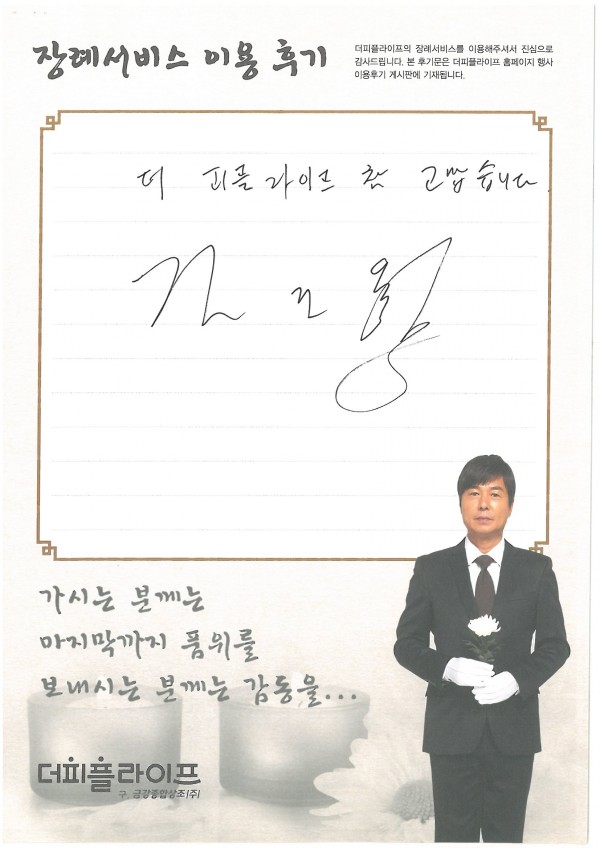 장례서비스 이용 후기
더피플라이프의 장례서비스를 이용해주셔서 진심으로
감사드립니다. 본 후기문은 더피플라이프 홈페이지 행사
이용후기 게시판에 기재됩니다.
더 피플라이프 참 고맙습니다.
가시는 분께는
마지막까지 품위를
보내시는 분께는 감동을...
더피플라이프
구. 금강종합상조(주)